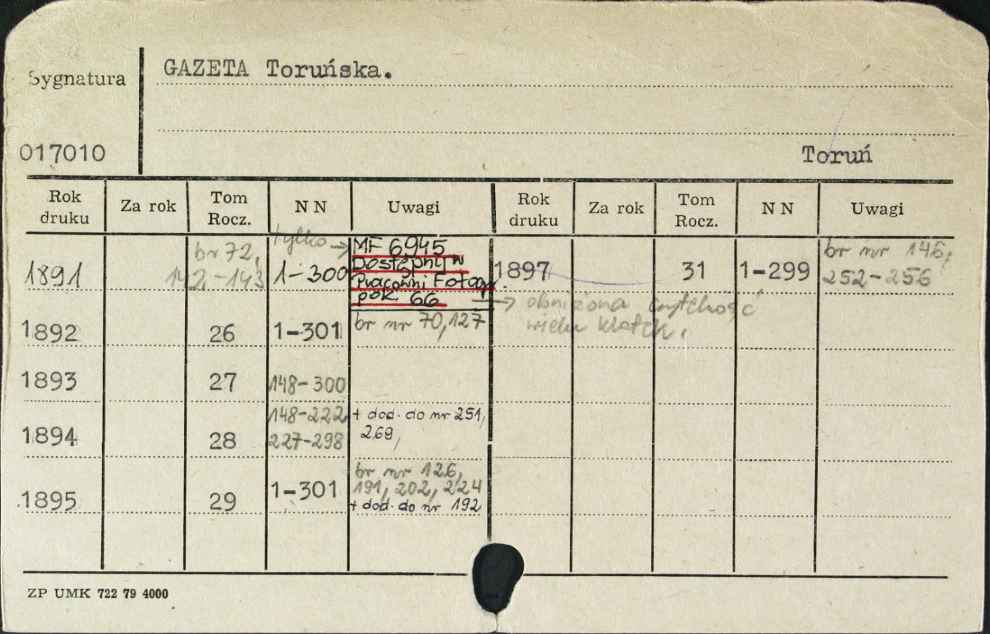 Sygnatura GAZETA Toruńska.
017010 Toruń
Rok druku Za rok Tom Rocz. NN Uwagi Rok druku Za rok Tom Rocz. NN Uwagi
1891 br 72, 142-143 tylko → 1-300 MF 6945
Dostępny w
Pracowni Fotogr
pok. 66
1897 31 1-299 br nr 146,
252-256
→ obniżona czytelność
wielu klatek.
1892 26 1-301 br nr 70,127
1893 27 148-300
1894 28 148-222 + dod. do nr 251,
227-298 269,
1895 29 1-301 br nr 126,
191, 202, 224
+ dod. do nr 192
ZP UMK 722 79 4000